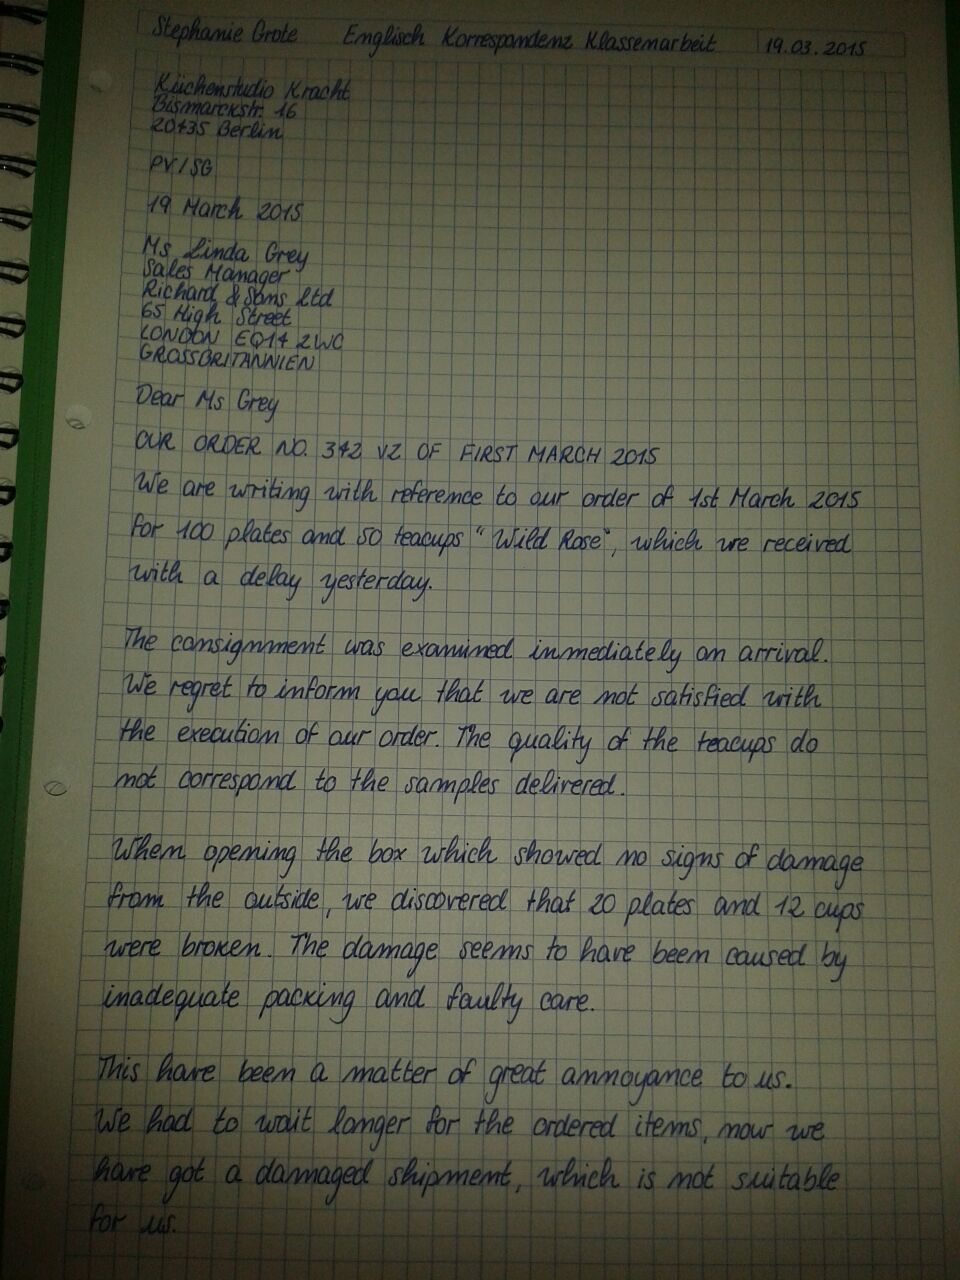 Stephanie Grote Englisch Korrespondenz Klassenarbeit 19.03.2015
Küchenstudio Kracht
Bismarckstr. 16
20435 Berlin
PV/SG
19 March 2015
Ms Linda Grey
Sales Manager
Richard & Sons Ltd
65 High Street
LONDON EQ14 2WC
GROSSBRITANNIEN
Dear Ms Grey
OUR ORDER NO. 342 VZ OF FIRST MARCH 2015
We are writing with reference to our order of 1st March 2015
for 100 plates and 50 teacups "Wild Rose", which we received
with a delay yesterday.
The consignment was examined immediately on arrival.
We regret to inform you that we are not satisfied with
the execution of our order. The quality of the teacups do
not correspond to the samples delivered.
When opening the box which showed no signs of damage
from the outside, we discovered that 20 plates and 12 cups
were broken. The damage seems to have been caused by
inadequate packing and faulty care.
This have been a matter of great annoyance to us.
We had to wait longer for the ordered items, now we
have got a damaged shipment, which is not suitable
for us.